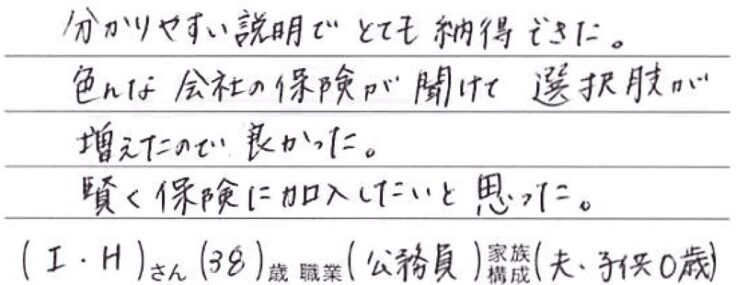 分かりやすい説明でとても納得できた。
色んな会社の保険が聞けて 選択肢が
増えたので良かった。
賢く保険に加入したいと思った。
(I・H)さん(38)歳 職業(公務員)家族構成(夫・子供0歳)